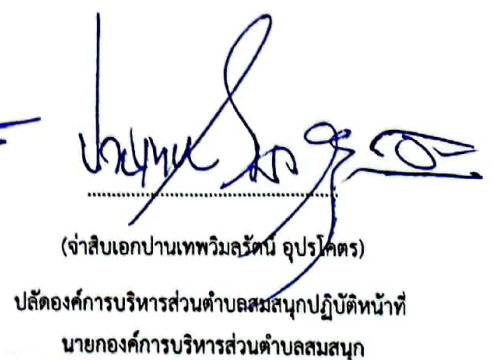 (จ่าสิบเอกปานเทพวิมลรัตน์ อุปรโคตร)
ปลัดองค์การบริหารส่วนตำบลสมสนุกปฏิบัติหน้าที่
นายกองค์การบริหารส่วนตำบลสมสนุก